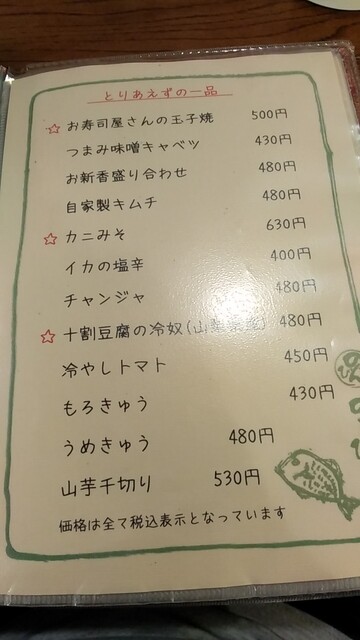 とりあえずの一品
☆ お寿司屋さんの玉子焼 500円
つまみ味噌キャベツ 430円
お新香盛り合わせ 480円
自家製キムチ 480円
☆ カニみそ 630円
イカの塩辛 400円
チャンジャ 480円
☆ 十割豆腐の冷奴(山 480円
冷やしトマト 450円
もろきゅう 430円
うめきゅう 480円
山芋千切り 530円
価格は全て税込表示となっています